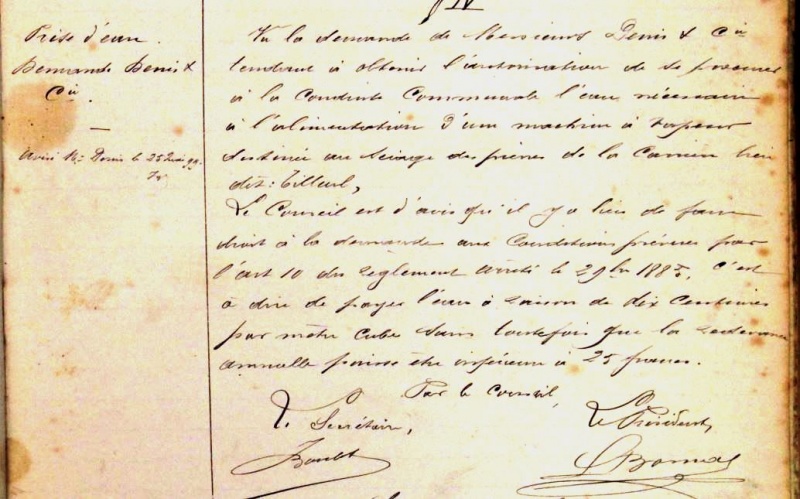 Prise d'eau.
Demande Denis &
Cie.
Avisé Mr Denis le 25
Vu la demande de Messieurs Denis & Cie
tendant à obtenir l'autorisation de se procurer
à la Conduite Communale l'eau nécessaire
à l'alimentation d'une machine à vapeur
destinée au sciage des pierres de la Carrière lieu
dit: Tilleul,
Le Conseil est d'avis qu'il y a lieu de faire
droit à la demande aux conditions prévues par
l'art 10 du règlement arrêté le 29 9bre, c'est
à dire de payer l'eau à raison de dix centimes
par mètre cube sans toutefois que la redevance
annuelle puisse être inférieure à 25 francs.
Par le Conseil,
Le Secrétaire,
Le Président,